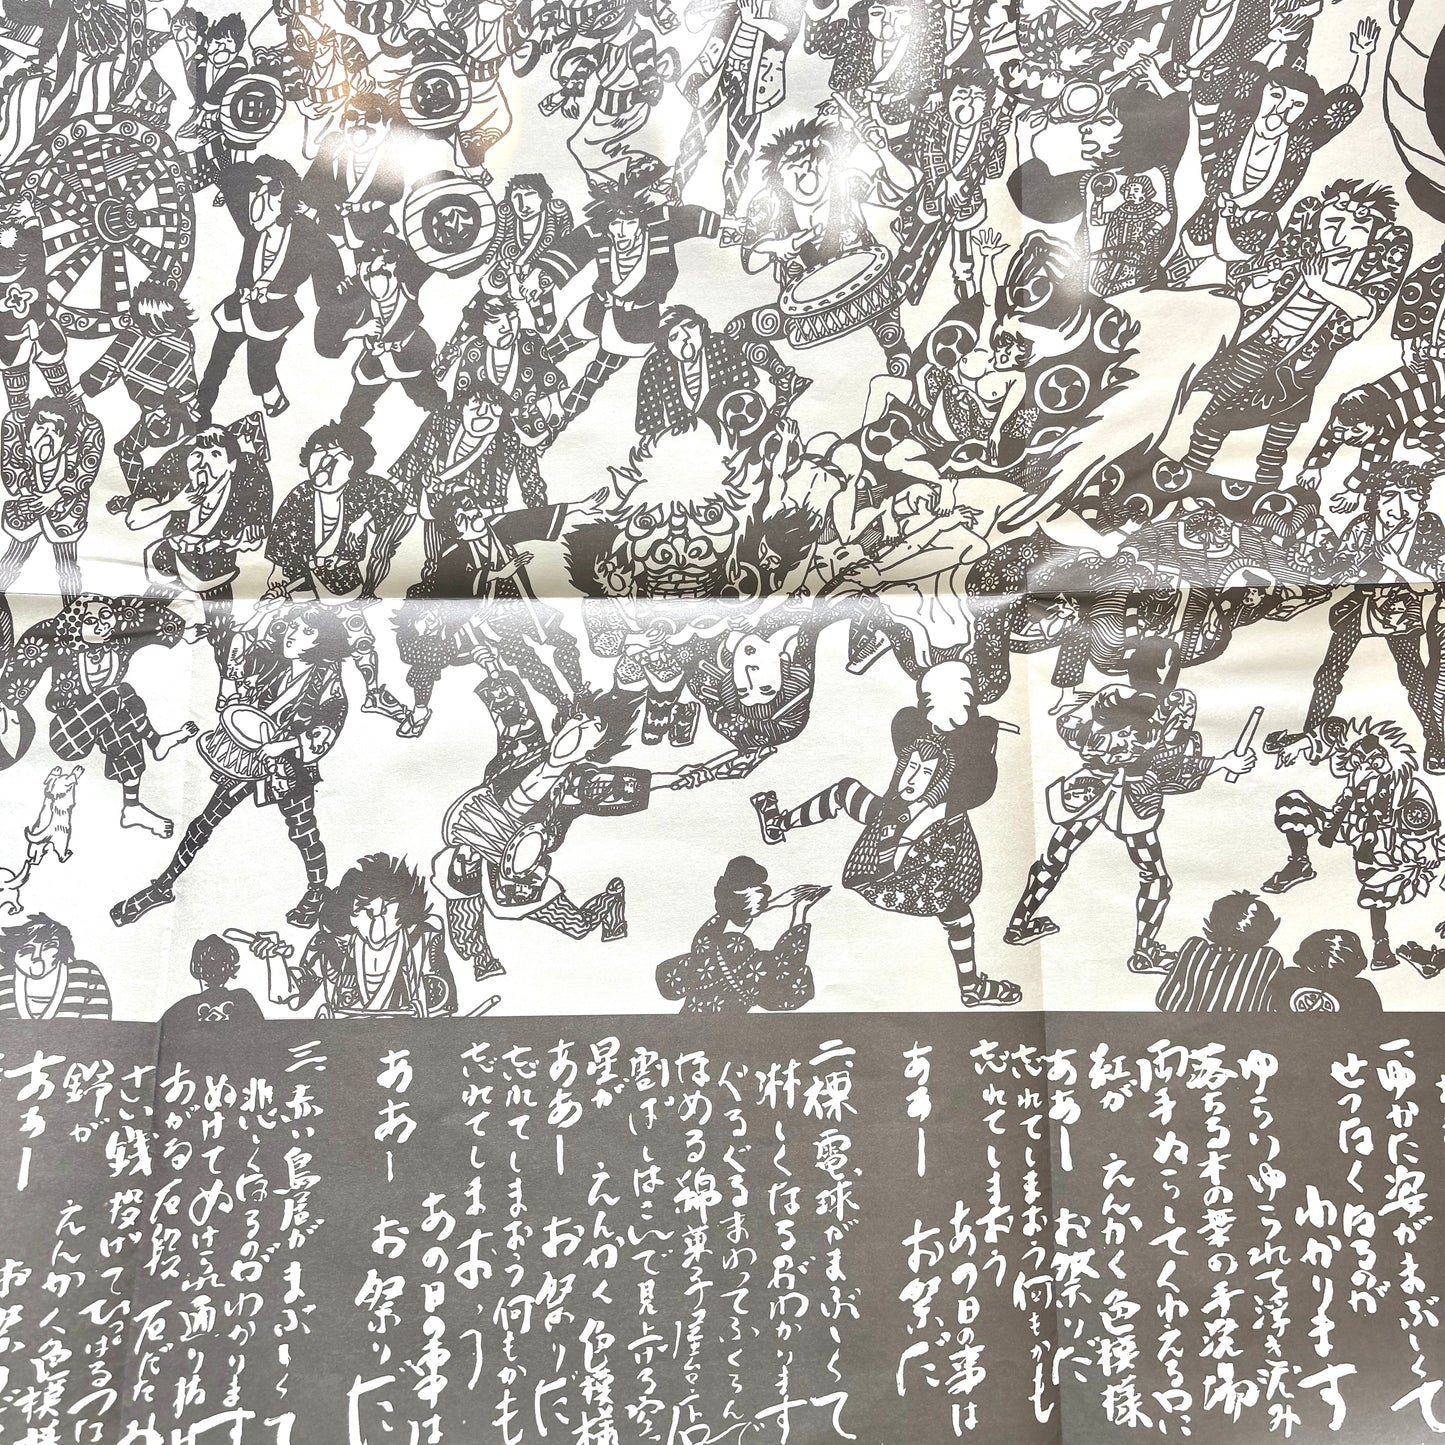 一、ゆかた姿がまぶしくて
せつなくなるのが
わかります
ゆらりゆられて浮き沈み
落ちる木の葉の手洗場
両手ぬらしてくわえる口に
紅が えがく色模様
ああー お祭りだ
忘れてしまおう何もかも
忘れてしまおう
あの日の事は
あぁー お祭りだ
二、裸電球がまぶしくて
淋しくなるのがわかります
ぐるぐるまわってふくらんで
なめる綿菓子屋台店
割ばしはさんで見上る空
星が えがく色模様
ああー お祭りだ
忘れてしまおう何もかも
忘れてしまおう
あの日の事は
ああー お祭りだ
三、赤い鳥居がまぶしくて
悲しくなるのがわかります
ぬけてぬけられ通り抜け
あがる石段 石だたみ
さい銭投げてひっぱるつな
鈴が えがく色模様
あぁー お祭りだ